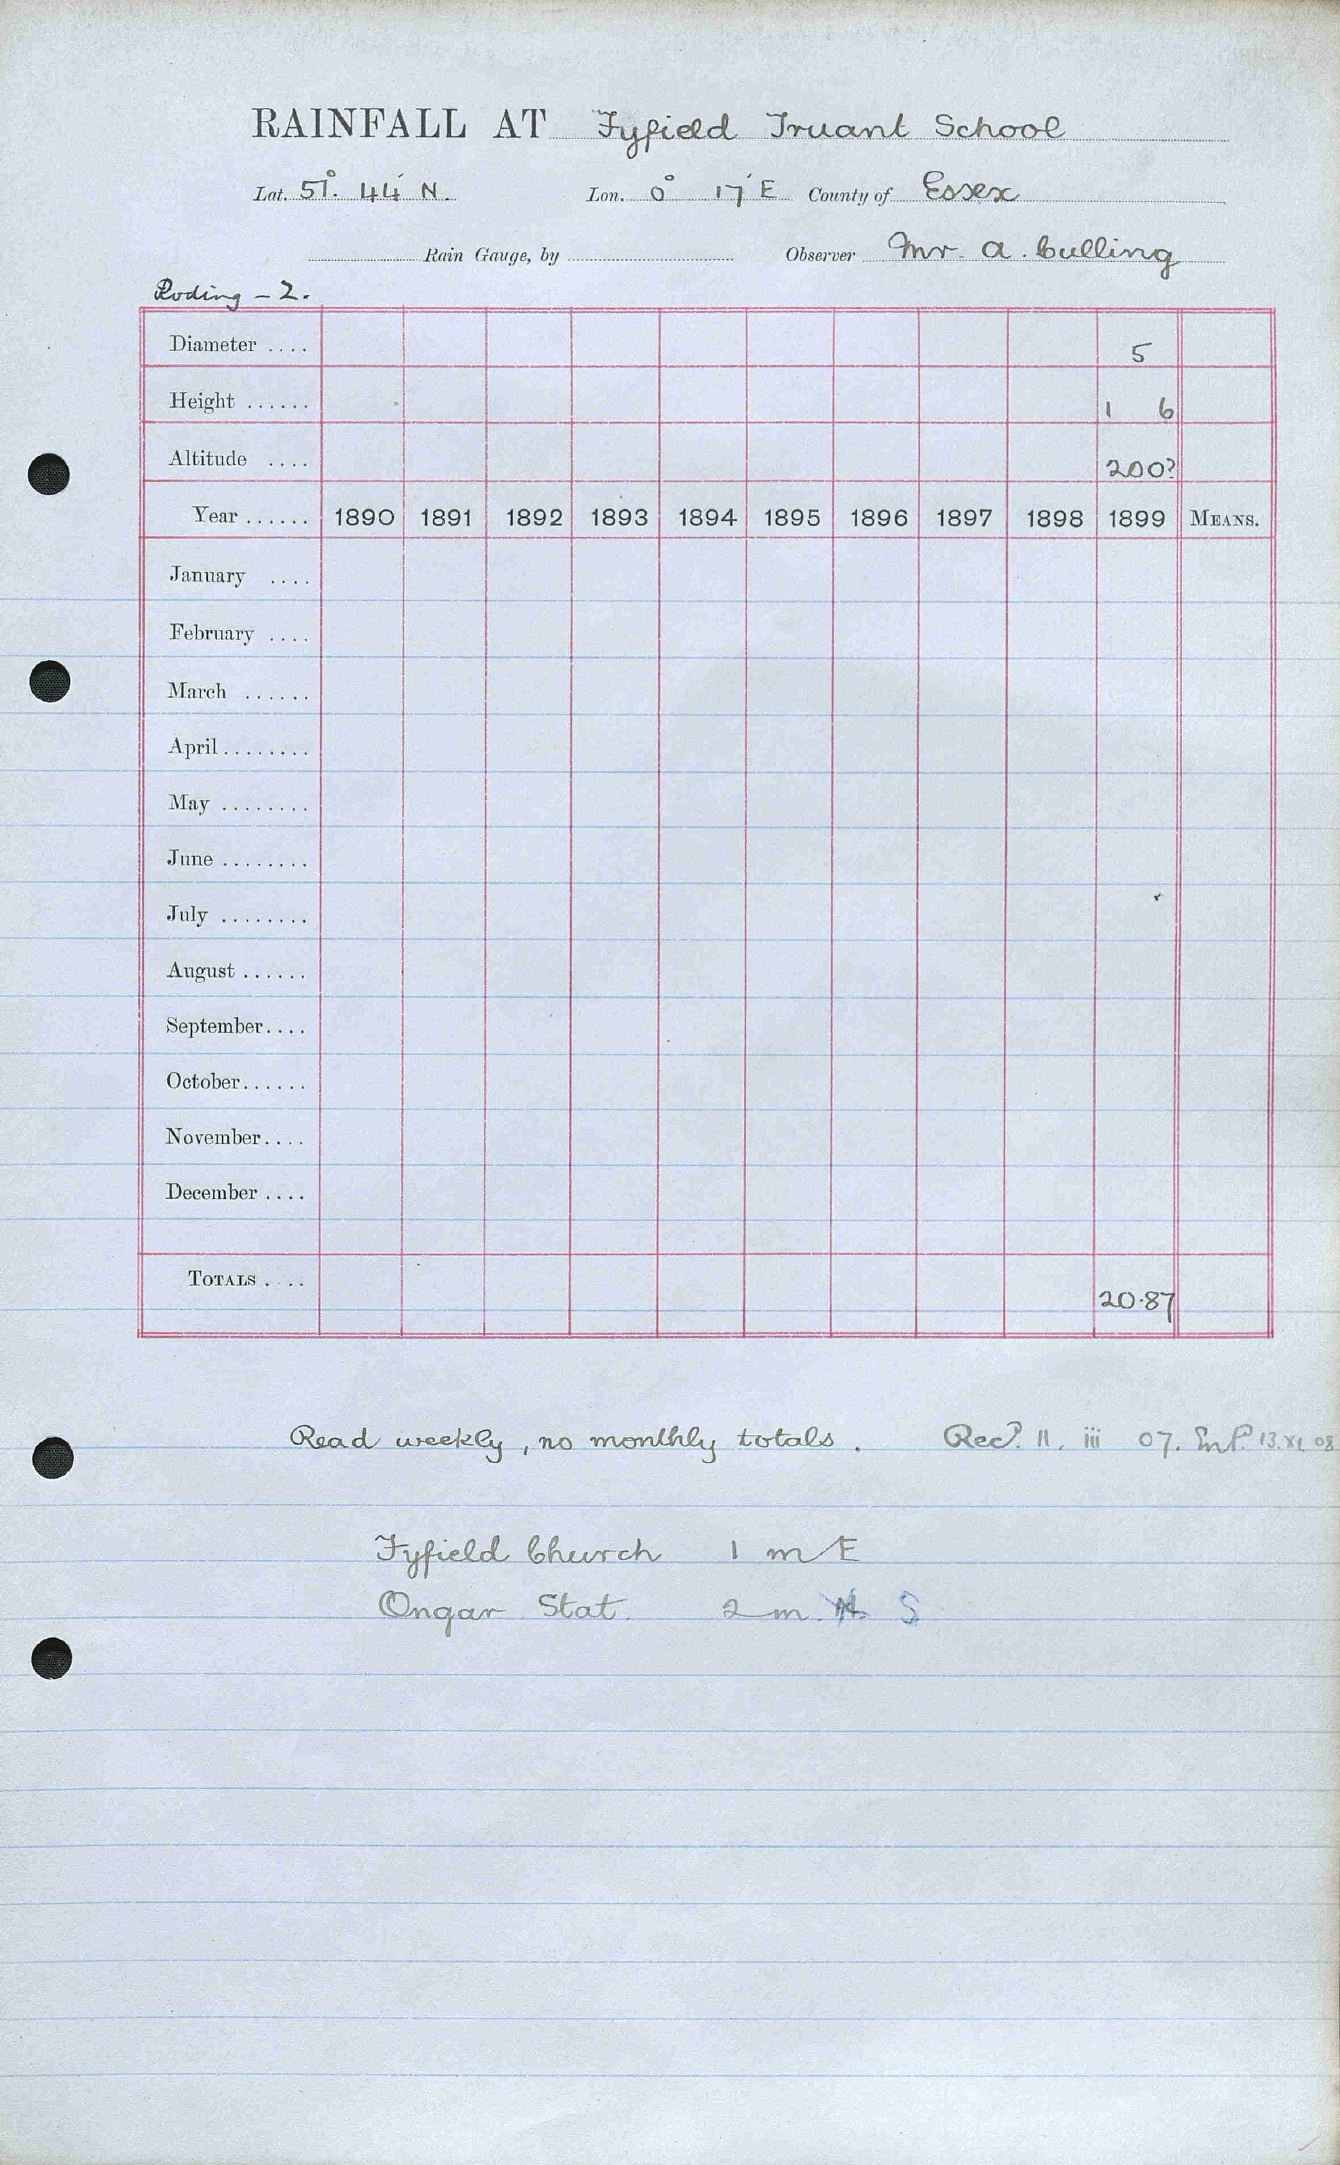 RAINFALL AT Fyfield Truant School
Lat. 51°. 44' N. Lon. 0° 17' E County of Essex
Rain Gauge, by Observer Mr. A. Culling
Roding - 2.
Diameter .... 5
Height ...... 1 6
Altitude .... 200?
Year ...... 1890 1891 1892 1893 1894 1895 1896 1897 1898 1899 MEANS.
January ....
February ....
March ......
April ........
May ........
June ........
July ........
August ......
September....
October......
November....
December ....
TOTALS .... 20.87
Read weekly, no monthly totals. Recd. 11. iii 07. 13.XI.08
Fyfield Church 1 m E
Ongar Stat. 2 m. N. S